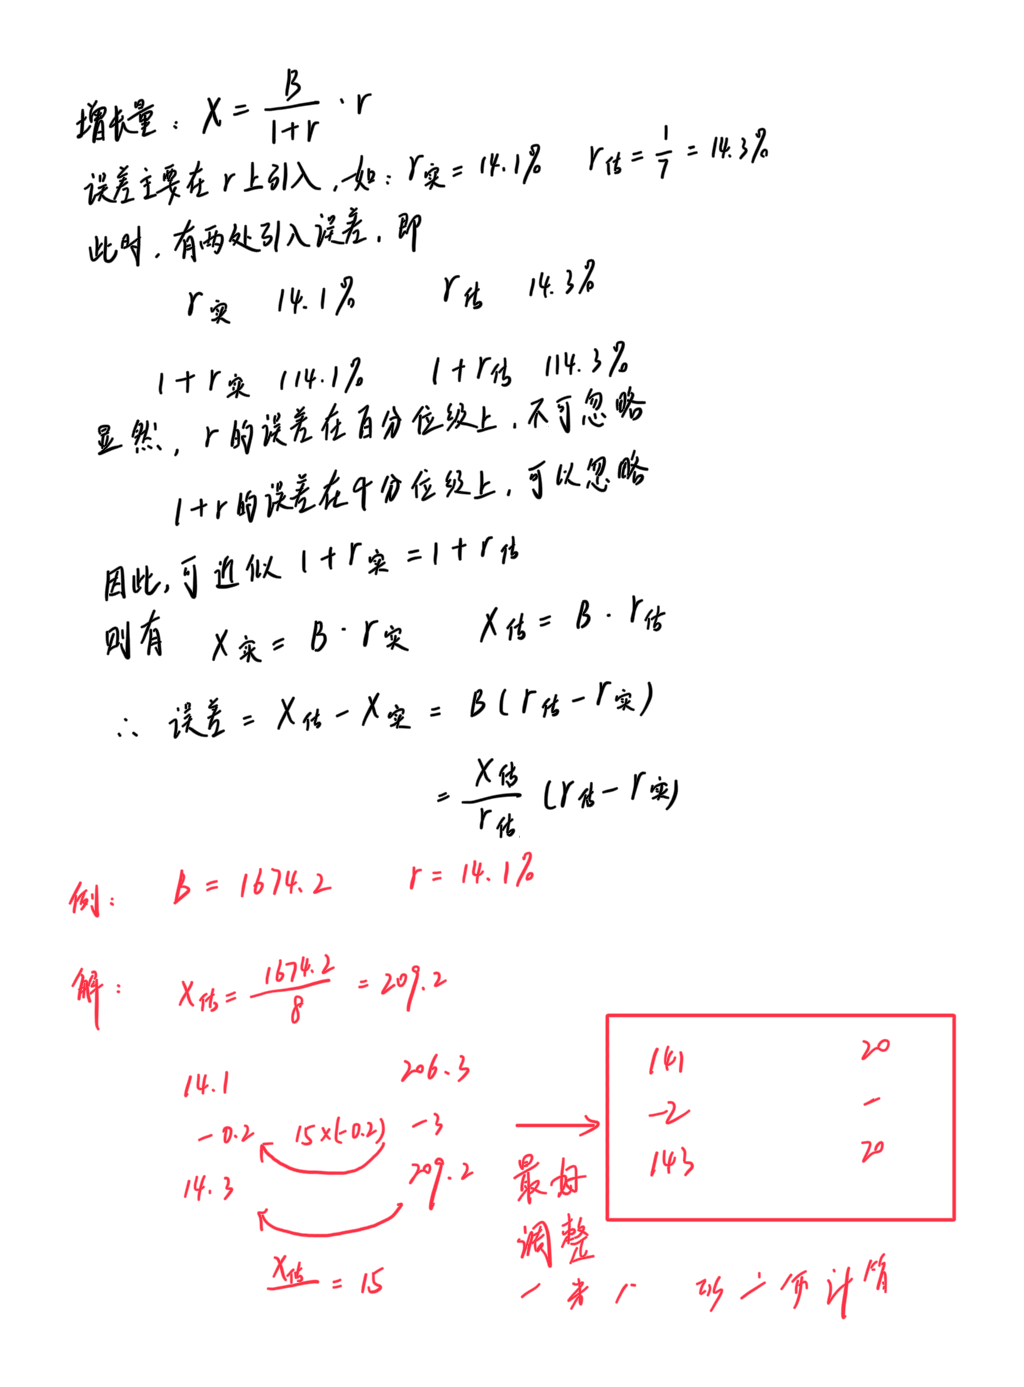 增长量: X = B/(1+r) · r
误差主要在 r 上引入,如: r实 = 14.1% r估 = 1/7 = 14.3%
此时,有两处引入误差,即
r实 14.1% r估 14.3%
1+r实 114.1% 1+r估 114.3%
显然, r的误差在百分位级上,不可忽略
1+r的误差在千分位级上,可以忽略
因此,可近似 1+r实 = 1+r估
则有 X实 = B · r实 X估 = B · r估
∴ 误差 = X估 - X实 = B(r估 - r实)
= X估/r估 (r估 - r实)
例: B = 1674.2 r = 14.1%
解: X估 = 1674.2/8 = 209.2
14.1 206.3
-0.2 15×(-0.2) -3
14.3 209.2
X估/ = 15
最好
调整
141 20
-2 -
143 20
计